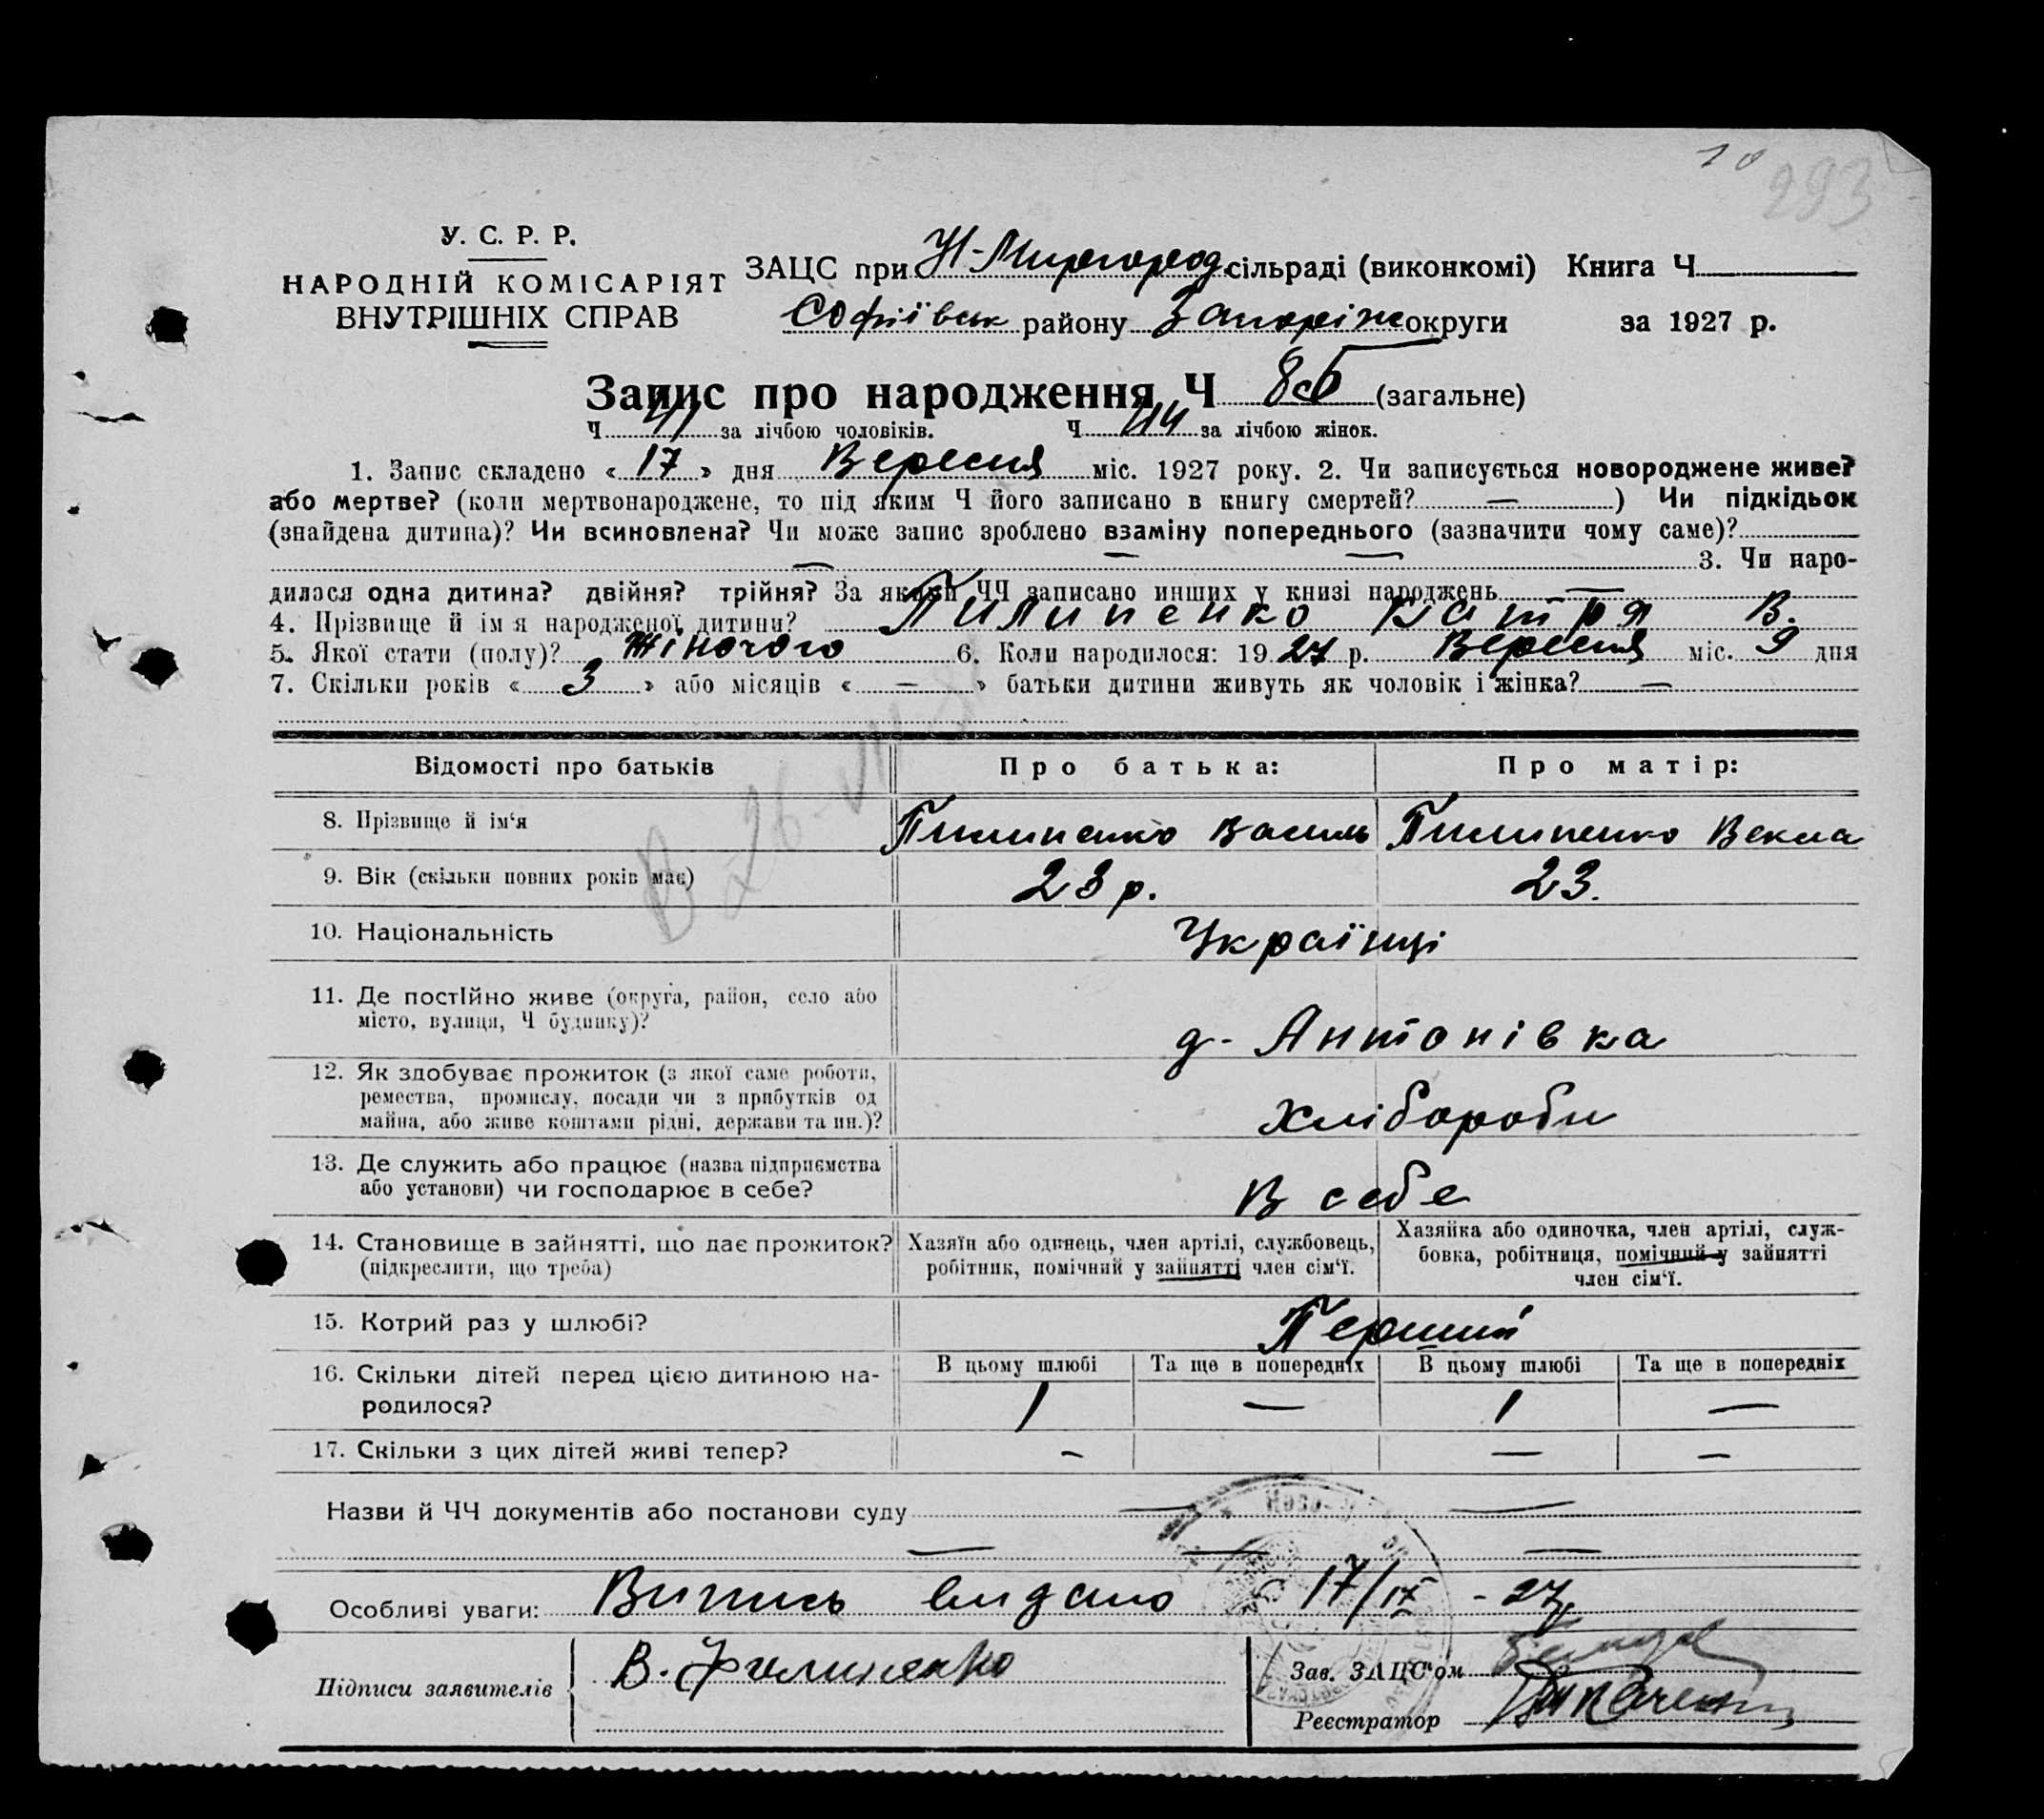 10
293
У. С. Р. Р.
НАРОДНІЙ КОМІСАРІЯТ
ВНУТРІШНІХ СПРАВ
ЗАЦС при Н-Миргород сільраді (виконкомі) Книга Ч
Софіївськ району Запоріж округи за 1927 р.
Запис про народження Ч 85 (загальне)
Ч 41 за лічбою чоловіків. Ч 44 за лічбою жінок.
1. Запис складено « 17 » дня Вересня міс. 1927 року. 2. Чи записується новороджене живе?
або мертве? (коли мертвонароджене, то під яким Ч його записано в книгу смертей? — ) Чи підкідьок
(знайдена дитина)? Чи всиновлена? Чи може запис зроблено взаміну попереднього (зазначити чому саме)?
— — — 3. Чи наро-
дилася одна дитина? двійня? трійня? За якими ЧЧ записано инших у книзі народжень —
4. Прізвище й ім я народженої дитини? Пилипенко Катря В.
5. Якої стати (полу)? Жіночого 6. Коли народилося: 1927 р. Вересня міс. 9 дня
7. Скільки років « 3 » або місяців « — » батьки дитини живуть як чоловік і жінка? —
Відомості про батьків Про батька: Про матір:
8. Прізвище й ім‘я Пилипенко Василь Пилипенко Векла
9. Вік (скільки повних років має) 23 р. 23.
10. Національність Українці
11. Де постійно живе (округа, район, село або
місто, вулиця, Ч будинку)?
д- Антонівка
12. Як здобуває прожиток (з якої саме роботи,
ремества, промислу, посади чи з прибутків од
майна, або живе коштами рідні, держави та ин.)?
Хлібороби
13. Де служить або працює (назва підприємства
або установи) чи господарює в себе?
В себе
14. Становище в зайнятті, що дає прожиток?
(підкреслити, що треба)
Хазяїн або одинець, член артілі, службовець,
робітник, помічний у зайнятті член сім‘ї.
Хазяйка або одиночка, член артілі, служ-
бовка, робітниця, помічний у зайнятті
член сім‘ї.
15. Котрий раз у шлюбі? Перший
16. Скільки дітей перед цією дитиною на-
родилося?
В цьому шлюбі Та ще в попередніх В цьому шлюбі Та ще в попередніх
1 — 1 —
17. Скільки з цих дітей живі тепер? - — —
Назви й ЧЧ документів або постанови суду — —
— — —
Особливі уваги: Випись видано 17/IX - 27
Підписи заявителів В. Филипенко
Зав. ЗАЦС‘ом
Реєстратор